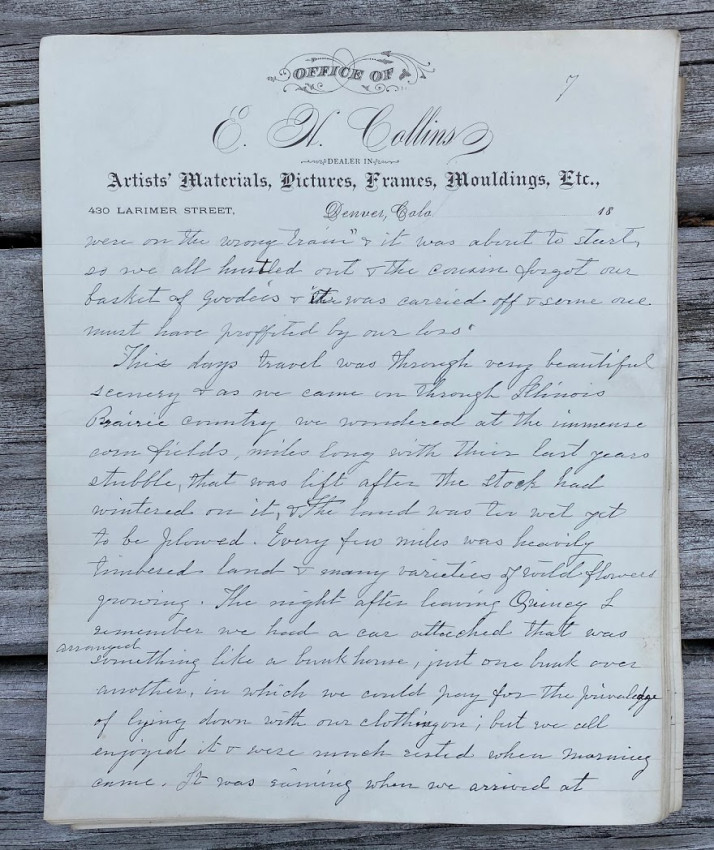 OFFICE OF
7
E. H. Collins
DEALER IN
Artists' Materials, Pictures, Frames, Mouldings, Etc.,
430 LARIMER STREET, Denver, Colo 18
were on the wrong train" & it was about to start,
so we all hustled out & the cousin forgot our
basket of goodies & it was carried off & some one
must have proffited by our loss.
This days travel was through very beautiful
scenery & as we came on through Illinois
Prairie country we wondered at the immense
corn fields, miles long with their last years
stubble, that was left after the stock had
wintered on it, & the land was too wet yet
to be plowed. Every few miles was heavily
timbered land & many varieties of wild flowers
growing. The night after leaving Quincy I
remember we had a car attached that was
arranged
something like a bunk house, just one bunk over
another, in which we could pay for the priveledge
of lying down with our clothing on; but we all
enjoyed it & were much rested when morning
came. It was raining when we arrived at